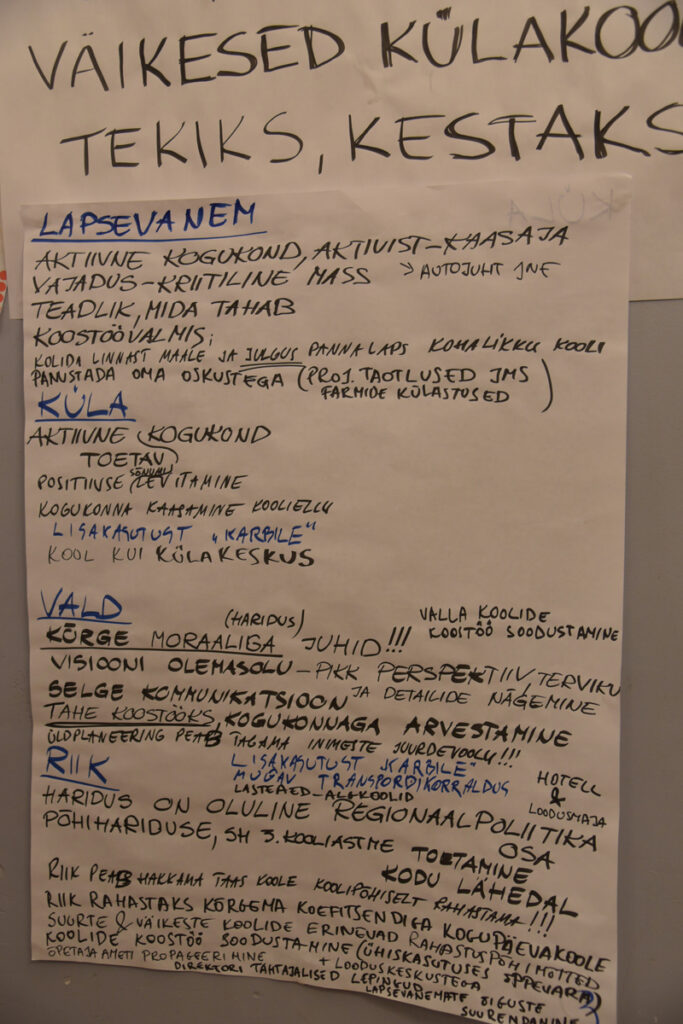 VÄIKESED KÜLAKOO
TEKIKS, KESTAKS
KÜLA
LAPSEVANEM
AKTIIVNE KOGUKOND, AKTIVIST-KAASAJA
VAJADUS-KRIITILINE MASS → AUTOJUHT JNE
TEADLIK, MIDA TAHAB
KOOSTÖÖVALMIS;
KOLIDA LINNAST MAALE JA JULGUS PANNA LAPS KOHALIKKU KOOLI
PANUSTADA OMA OSKUSTEGA (PROJ. TAOTLUSED JMS
FARMIDE KÜLASTUSED)
KÜLA
AKTIIVNE KOGUKOND
TOETAV
SÕNUMI
POSITIIVSE LEVITAMINE
KOGUKONNA KAASAMINE KOOLIELLU
LISAKASUTUST „KARBILE"
KOOL KUI KÜLAKESKUS
VALD
(HARIDUS)
VALLA KOOLIDE
KOOSTÖÖ SOODUSTAMINE
KÕRGE MORAALIGA JUHID!!!
VISIOONI OLEMASOLU - PIKK PERSPEKTIIV, TERVIKU
JA DETAILIDE NÄGEMINE
SELGE KOMMUNIKATSIOON
TAHE KOOSTÖÖKS, KOGUKONNAGA ARVESTAMINE
ÜLDPLANEERING PEAB TAGAMA INIMESTE JUURDEVOOLU!!!
RIIK
LISAKASUTUST „KARBILE"
MUGAV TRANSPORDIKORRALDUS
LASTEAED-ALGKOOLID
HOTELL
&
LOODUSMAJA
HARIDUS ON OLULINE REGIONAALPOLIITIKA
OSA
PÕHIHARIDUSE, SH 3. KOOLIASTME TOETAMINE
KODU LÄHEDAL
RIIK PEAB HAKKAMA TAAS KOOLE KOOLIPÕHISELT RAHASTAMA!!!
RIIK RAHASTAKS KÕRGEMA KOEFITSENDIGA KOGUPÄEVAKOOLE
SUURTE & VÄIKESTE KOOLIDE ERINEVAD RAHASTUSPÕHIMÕTTED
KOOLIDE KOOSTÖÖ SOODUSTAMINE (ÜHISKASUTUSES ÕPPEVARA)
+ LOODUSKESKUSTEGA
ÕPETAJA AMETI PROPAGEERIMINE
DIREKTORI TÄHTAJALISED LEPINGUD
LAPSEVANEMATE ÕIGUSTE
SUURENDAMINE